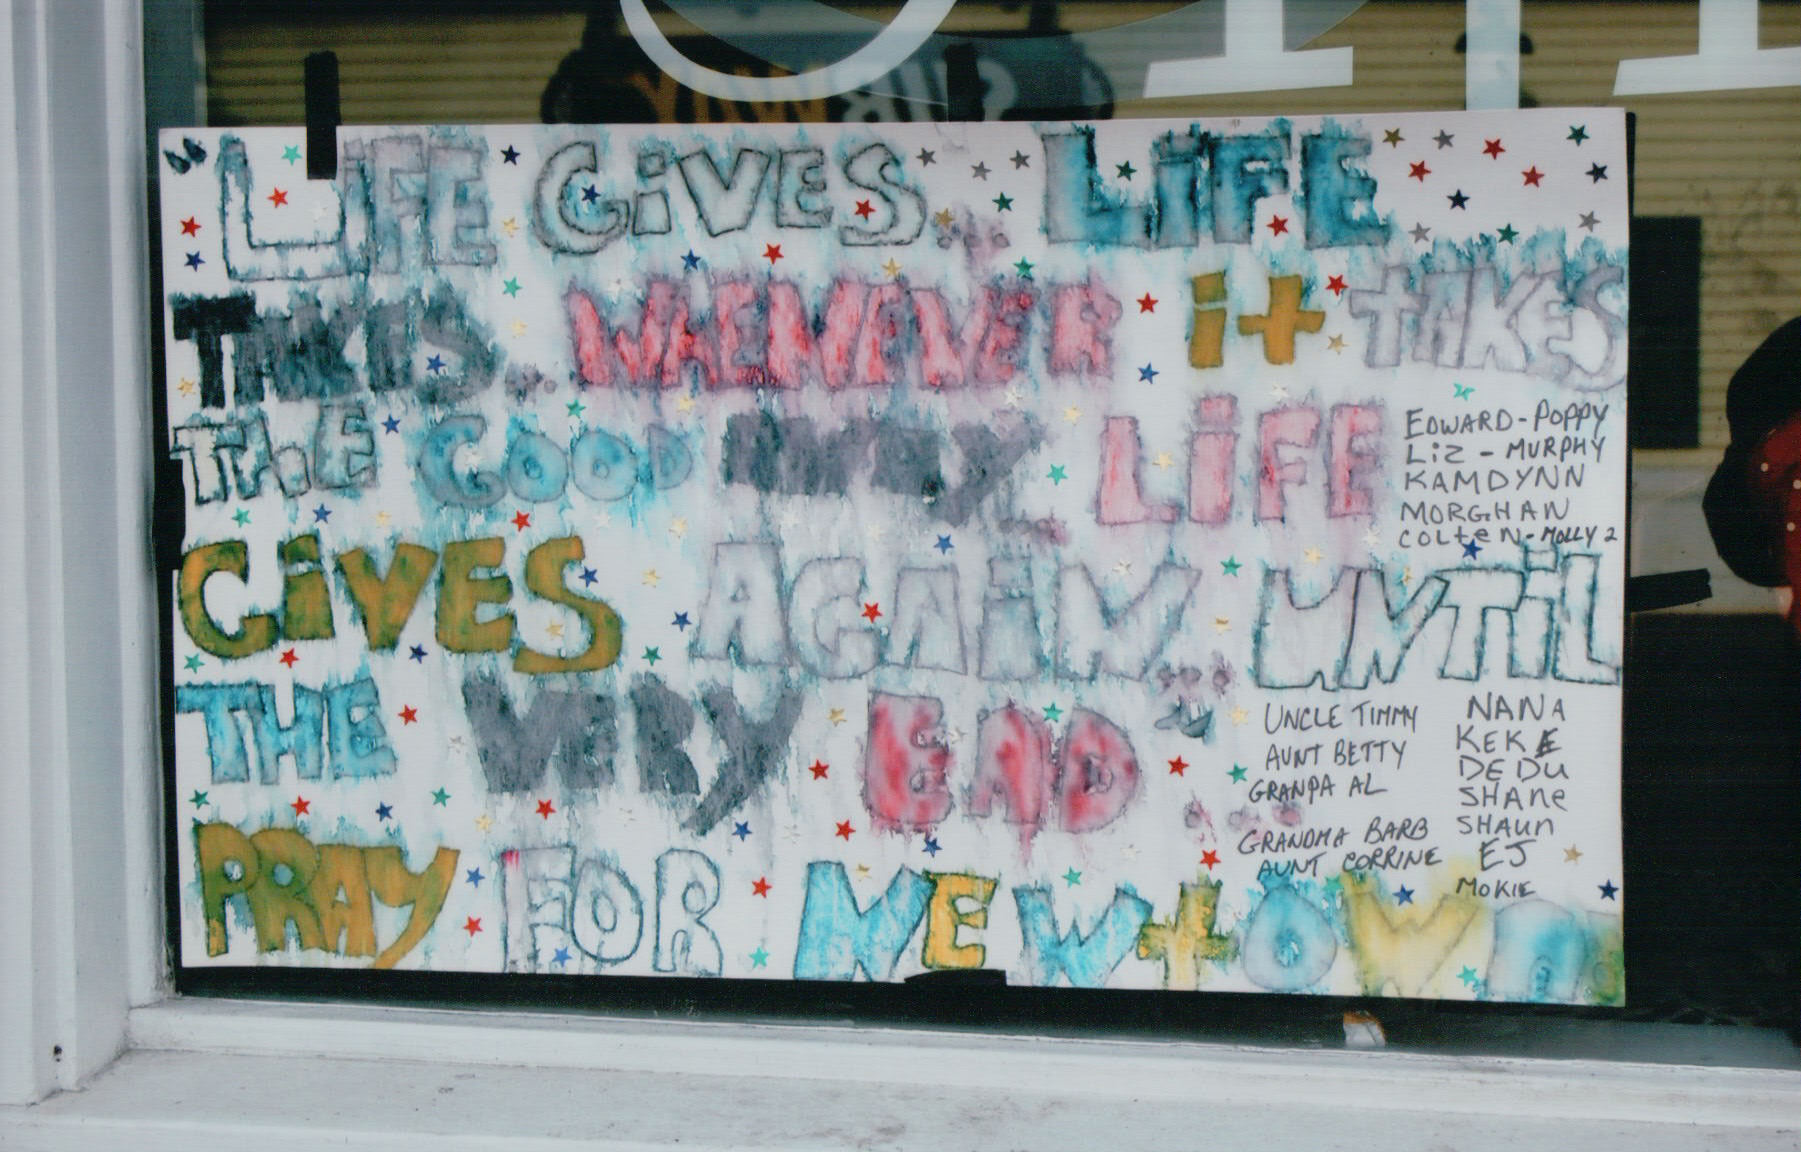 "LiFE GiVES... LiFE
TAKES... WHENEVER it tAKES
ThE GOOD AWAY... LiFE
EDWARD - POPPY
LiZ - MURPHY
KAMDYNN
MORGHAN
COLteN - MOLLY 2
GiVES AGAiN... UNTiL
THE VERY END"...
UNCLE TIMMY
AUNT BETTY
GRANPA AL
GRANDMA BARB
AUNT CORRINE
NANA
KEKE
DEDU
SHANe
SHAUn
EJ
MOKIE
PRAY FOR NEWtOWn